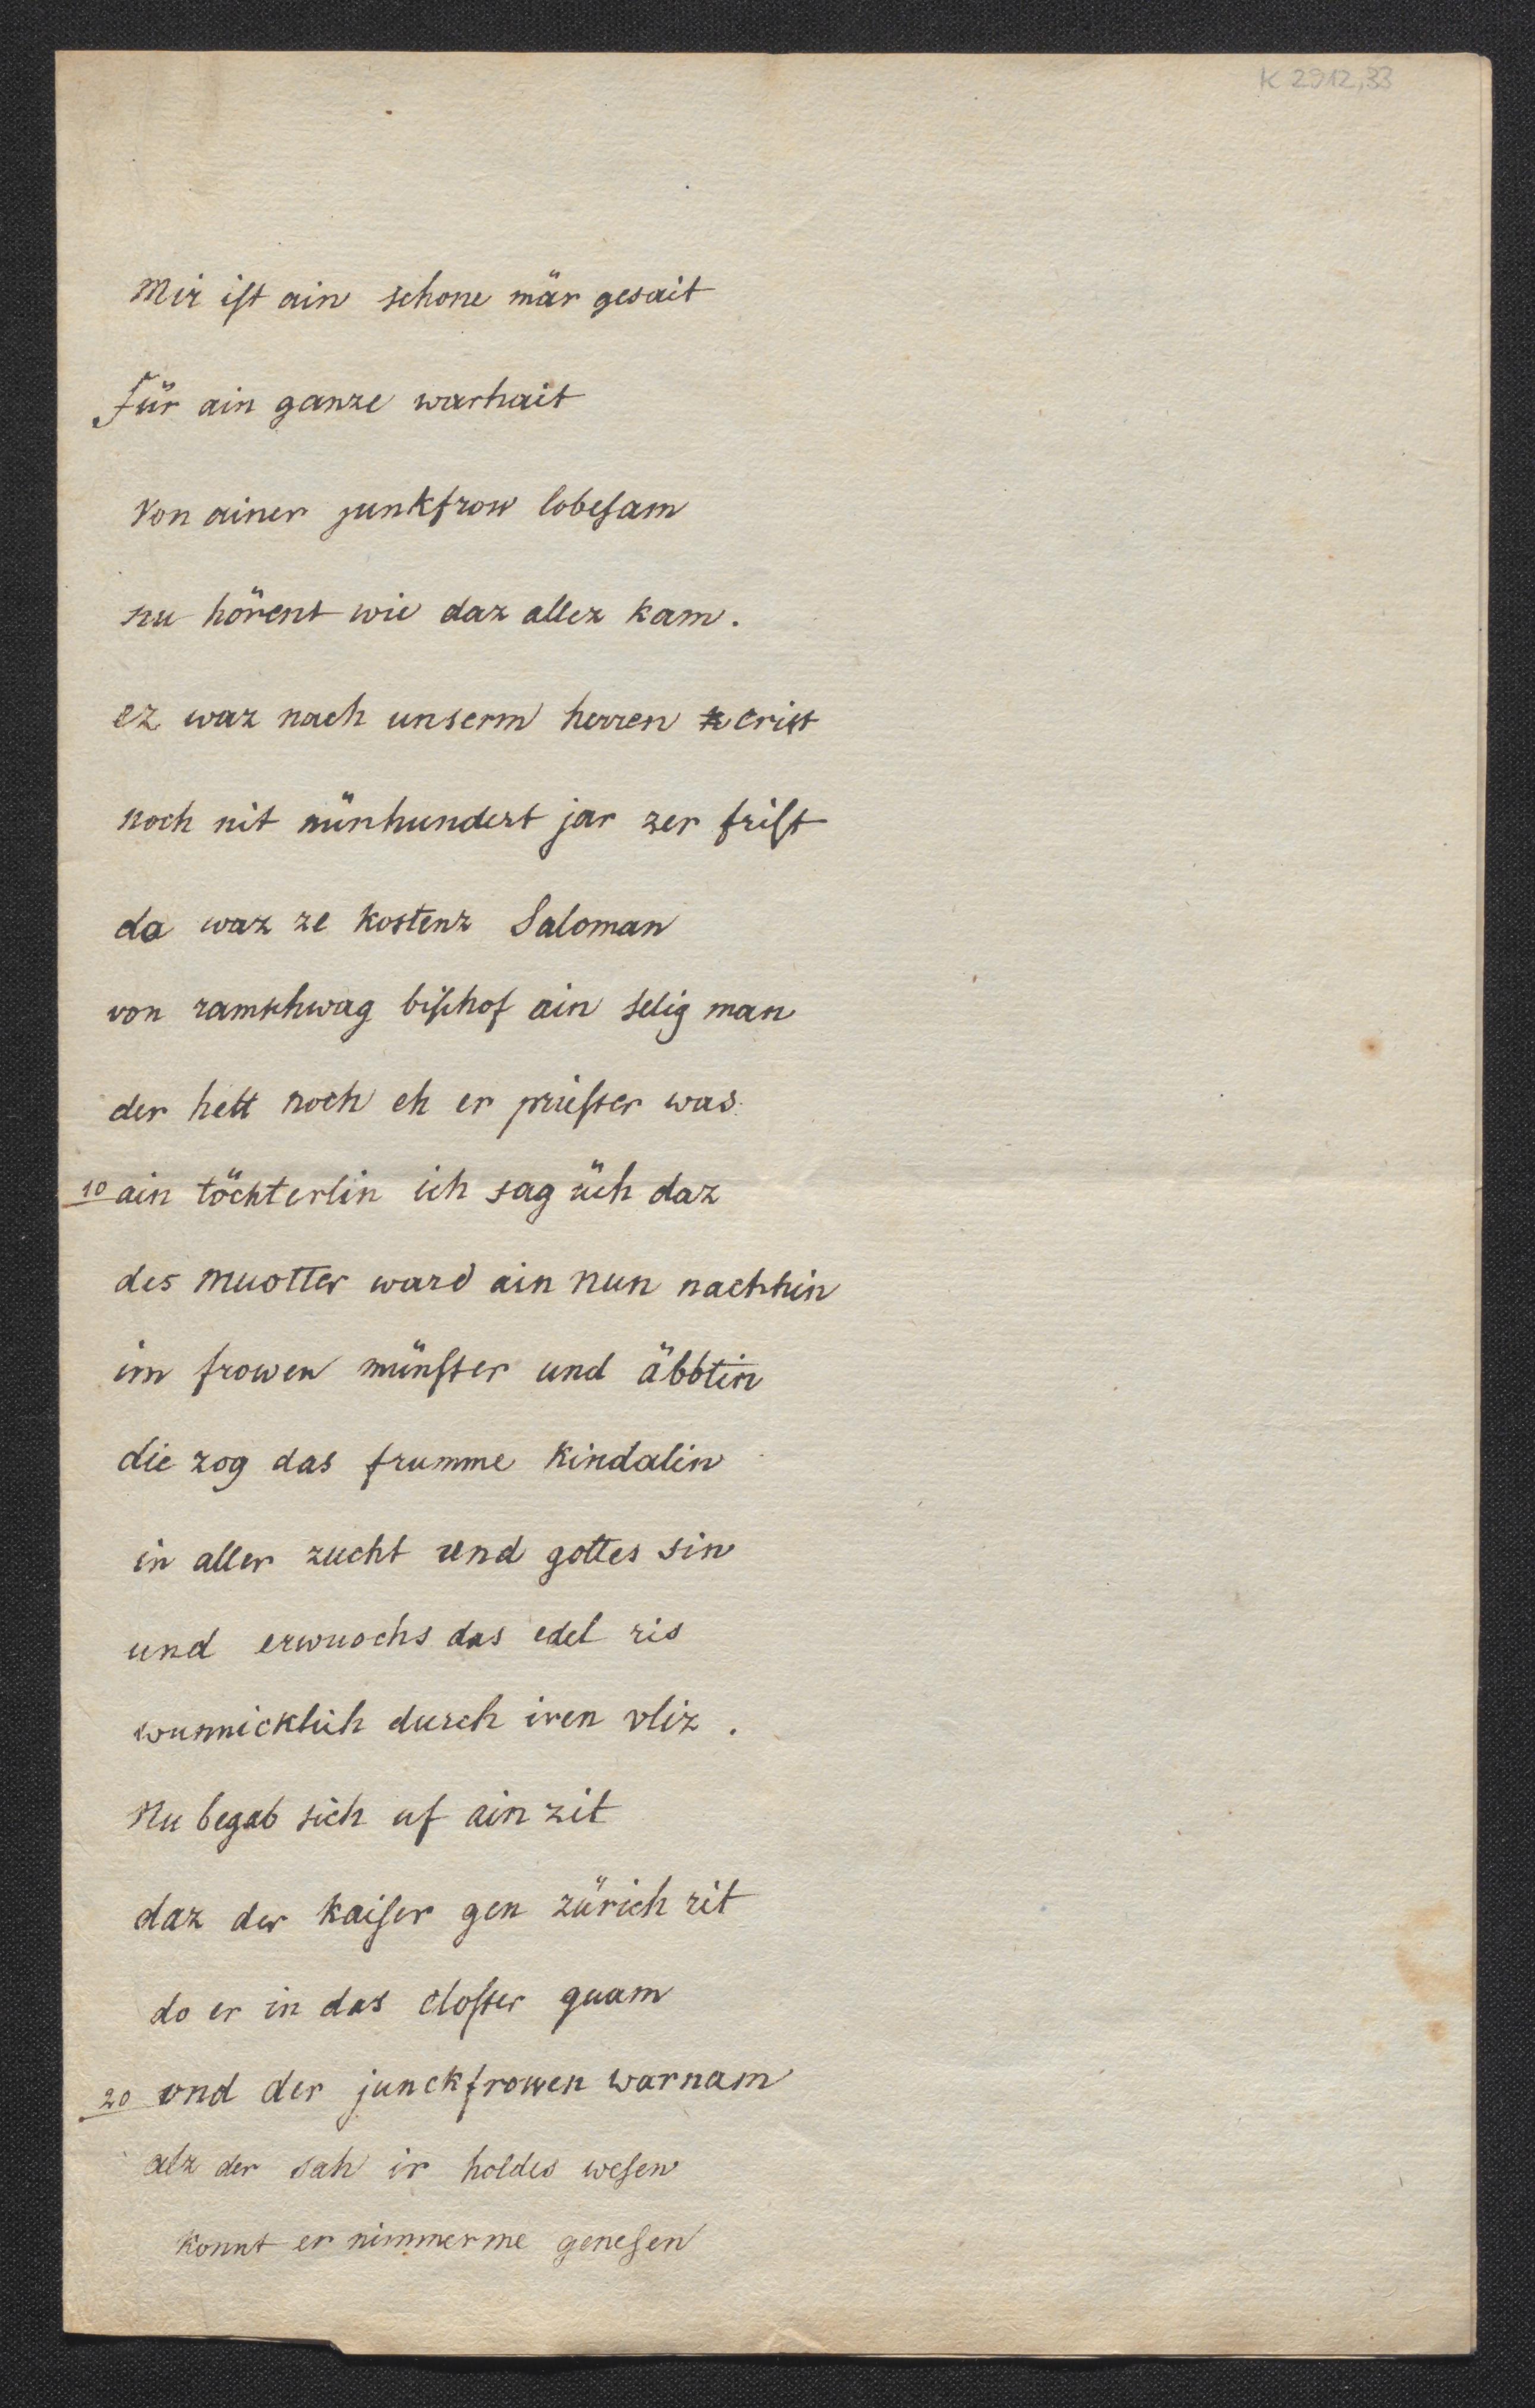 K 2912,33
Mir ist ain schone mär gesait
Für ain ganze warhait
Von ainer junkfrow lobesam
nu hörent wie daz allez kam.
ez waz nach unserm herren crist
noch nit nünhundert jar zer frist
da waz ze kostenz Saloman
von ramschwag bischof ain selig man
der hett noch eh er priester was
10 ain töchterlin ich sag üch daz
des muotter ward ain nun nachhin
im frowen münster und äbbtin
die zog das frumme kindalin
in aller zucht und gottes sin
und erwuochs das edel ris
wunnicklich durch iren vliz.
Nu begab sich uf ain zit
daz der kaiser gen zürich rit
do er in das closter quam
20 vnd der junckfrowen warnam
alz der sah ir holdes wesen
konnt er nimmerme genesen